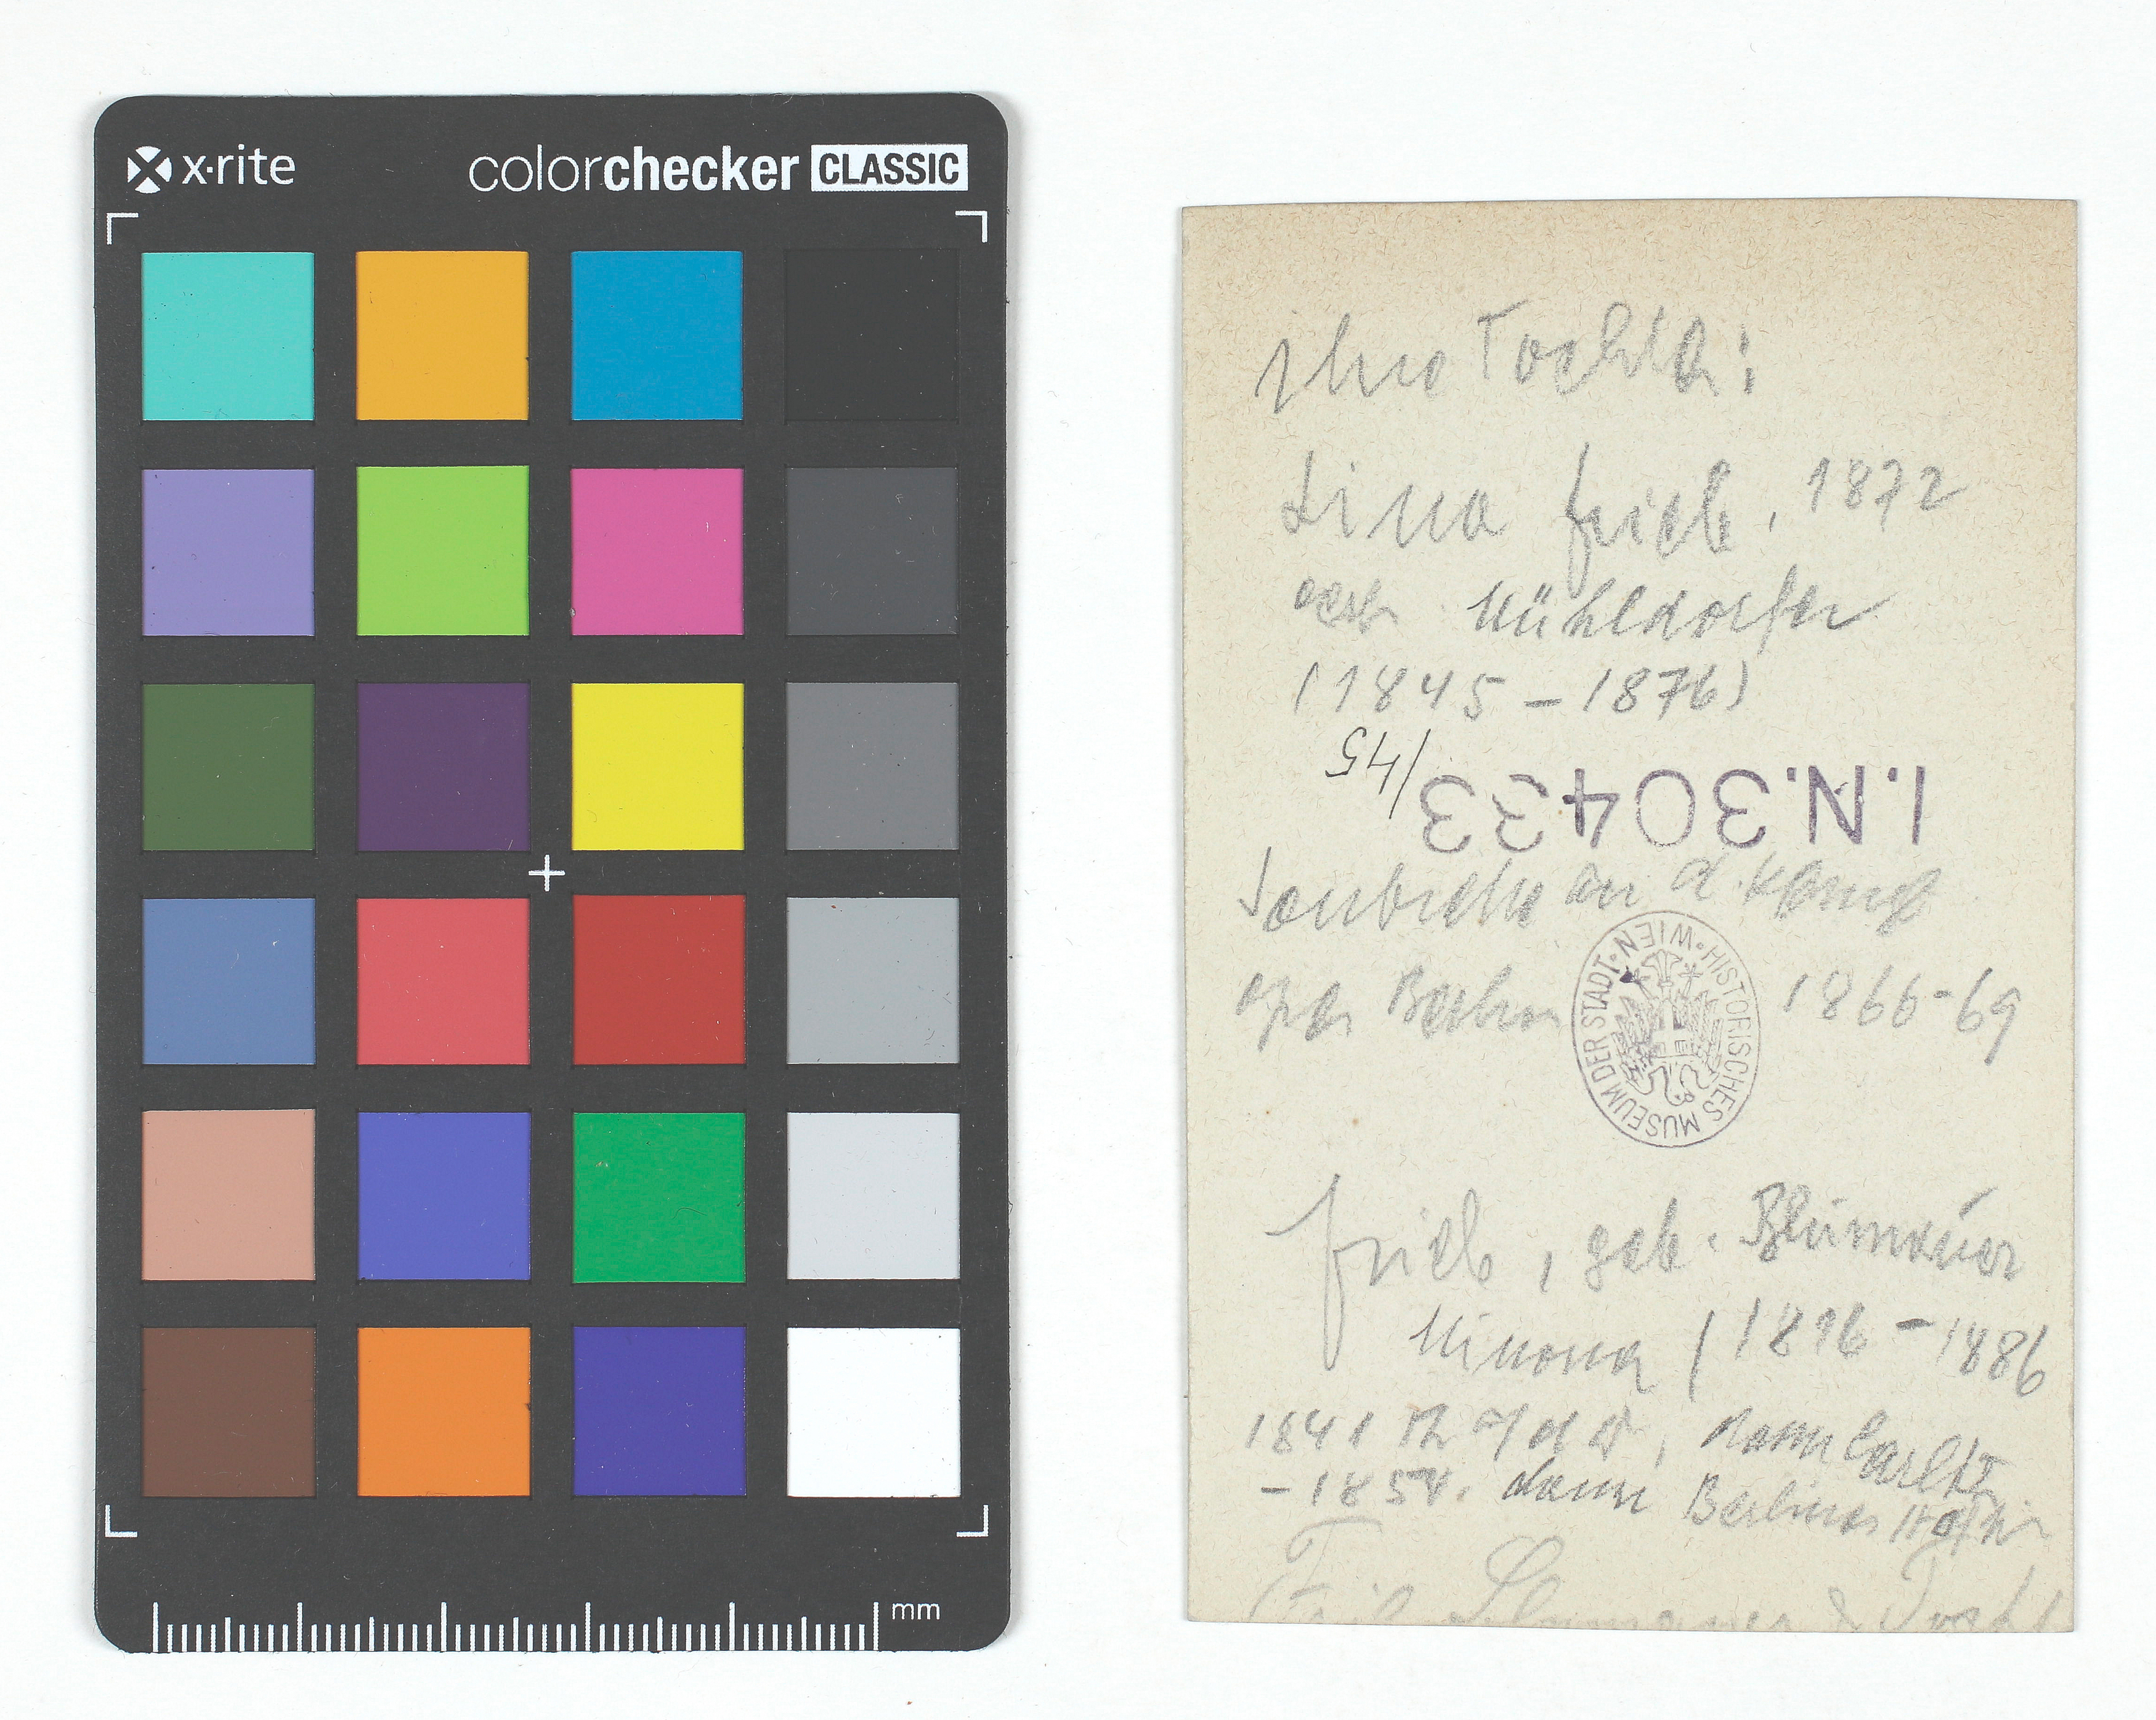 x·rite
colorchecker CLASSIC
mm
ihre Tochter:
Lina Frieb, 1872
verh Mühldorfer
(1845 - 1876)
I.N.30433
/45
Soubrette an d. König
oper Berlin 1866-69
HISTORISCHES MUSEUM DER STADT·WIEN·
Frieb, geb. Blumauer
Minona (1816 - 1886
1841 Th a/d W, dann Carlth
- 1854. dann Berliner Hofth
Frieb Blumauer & Tocht